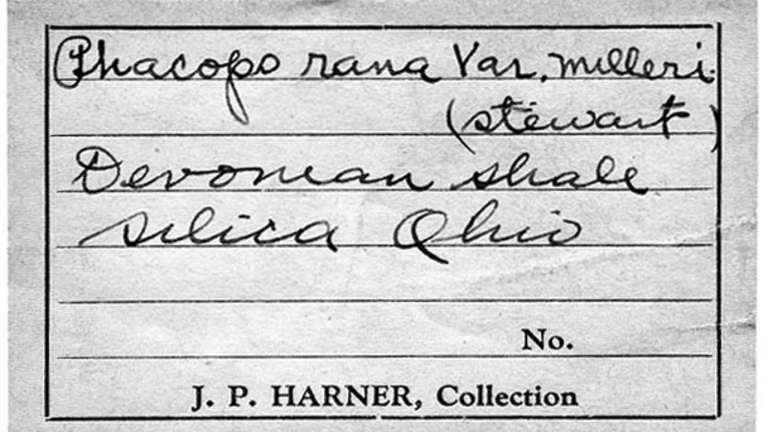 Phacops rana Var. milleri
(stewart)
Devonian shale
silica Ohio
No.
J. P. HARNER, Collection